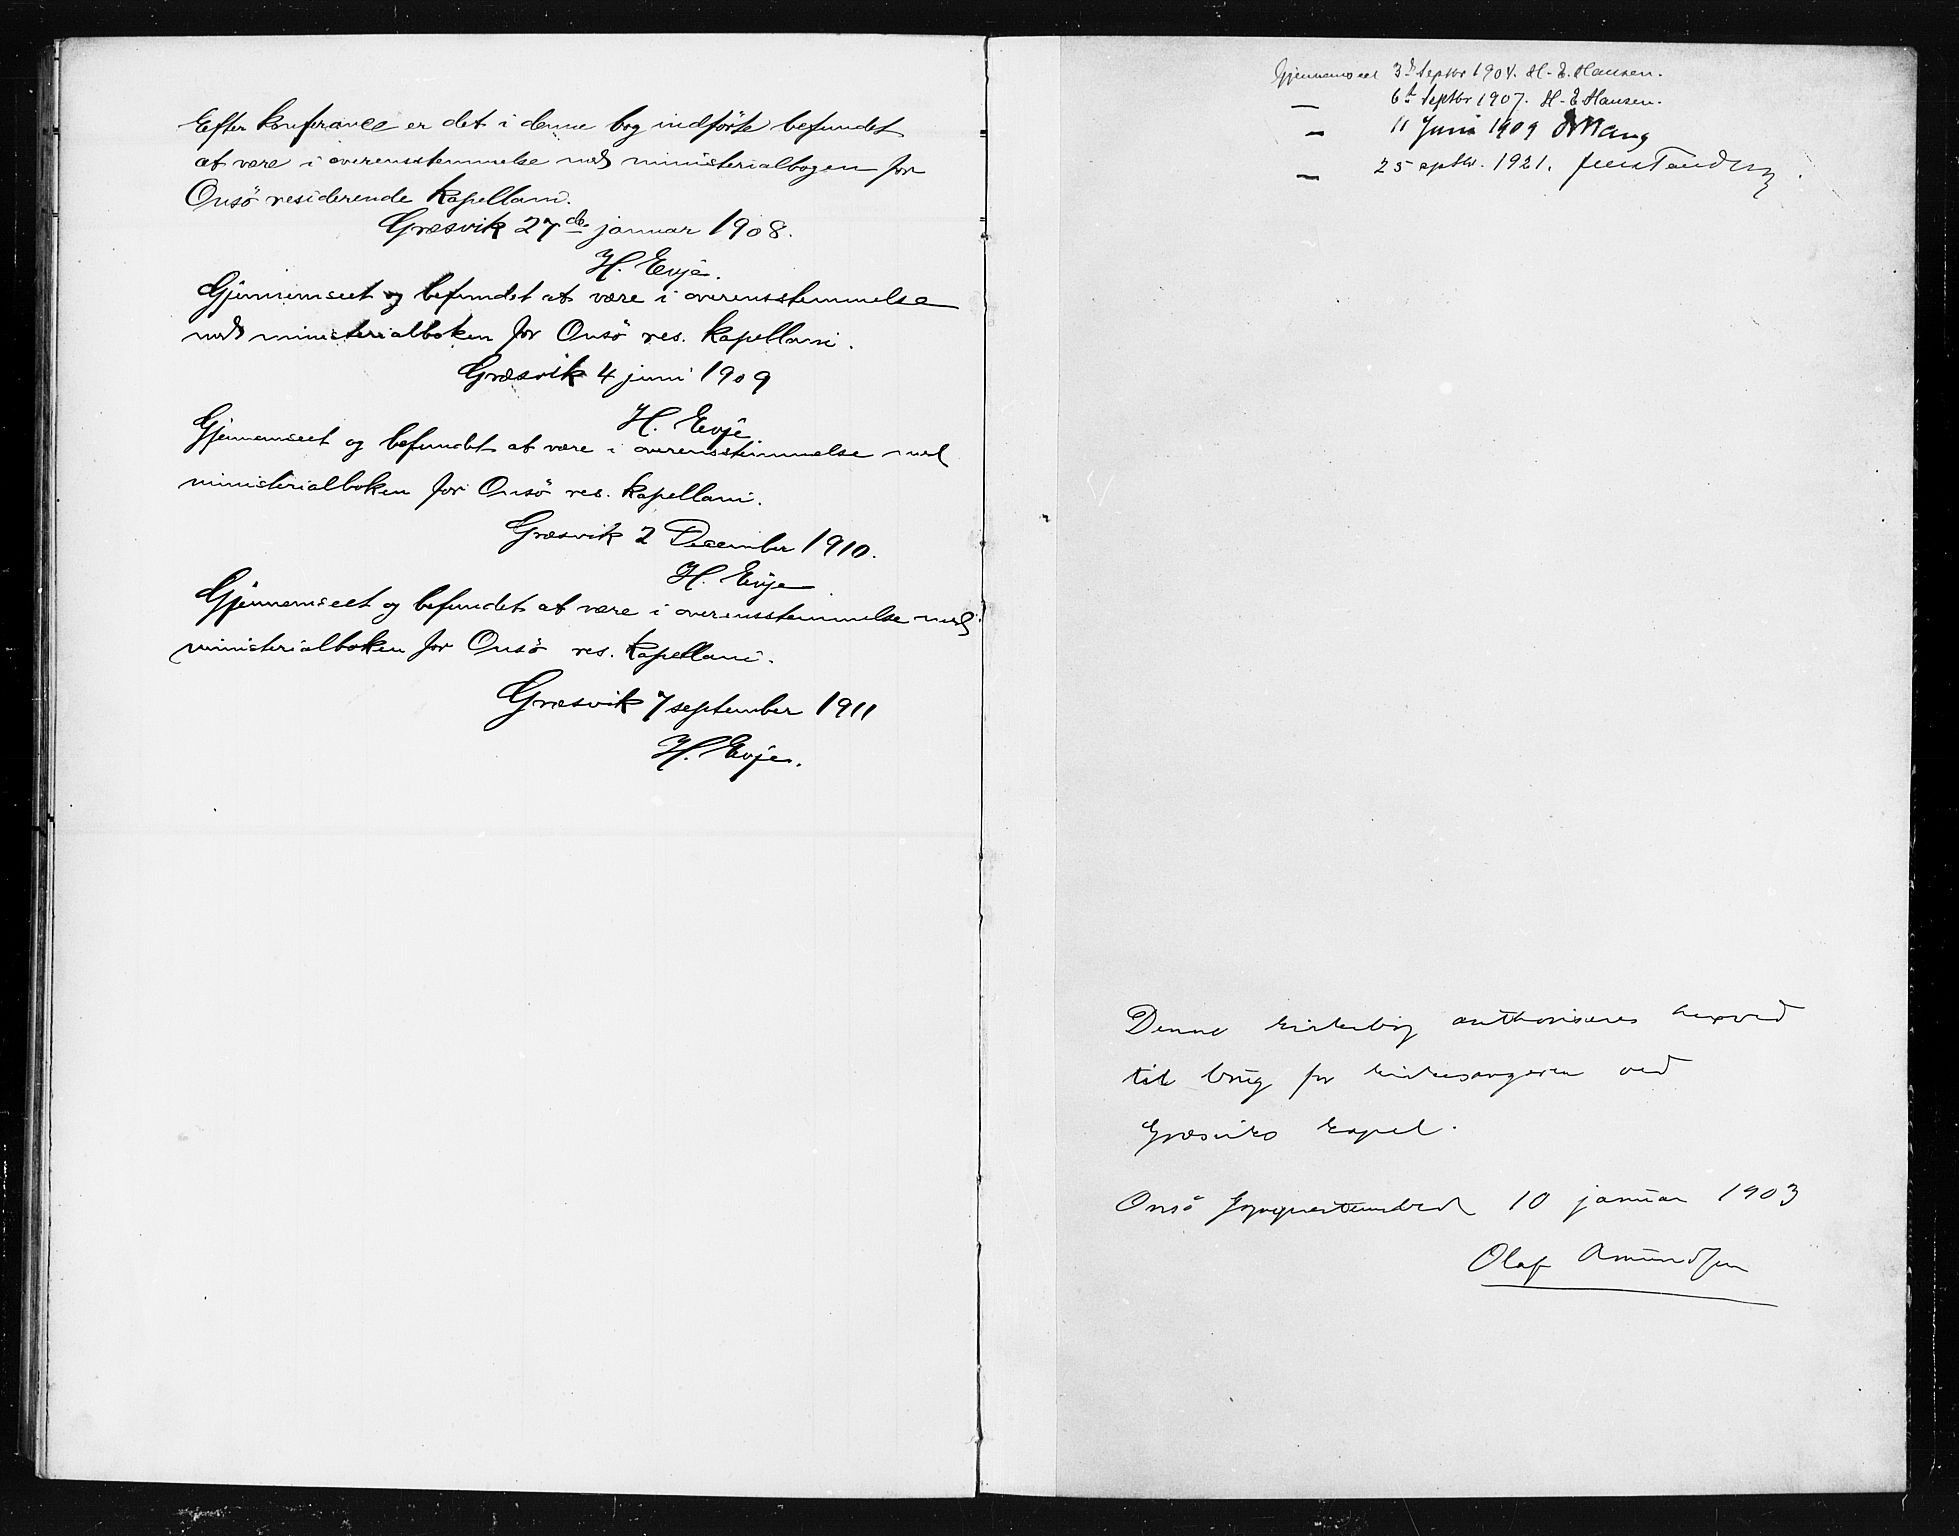 Efter konferance er det i denne bog indförte befundet
at være i overensstemmelse med ministerialbogen for
Onsö residerende kapellani.
Græsvik 27de januar 1908.
H. Evje.
Gjennemseet og befundet at være i overensstemmelse
med ministerialboken for Onsö res. kapellani.
Græsvik 4 juni 1909
H. Evje
Gjennemseet og befundet at være i overensstemmelse med
ministerialboken for Onsö res. kapellani.
Græsvik 2 December 1910.
H. Evje
Gjennemseet og befundet at være i overensstemmelse med
ministerialboken for Onsö res. kapellani.
Græsvik 7 september 1911
H. Evje.
Gjennemseet 3d Septbr 1904. H. E. Hansen.
— 6te Septbr 1907. H. E Hansen.
— 11 Juni 1909
— 25 septbr. 1921. Jens Tandberg.
Denne kirkebog authoriseres herved
til brug for kirkesangeren ved
Græsviks kapel.
Onsö sogneprestembede 10 januar 1903
Olaf Amundsen